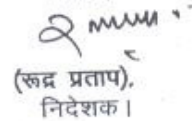 (रूद्र प्रताप),
निदेशक।